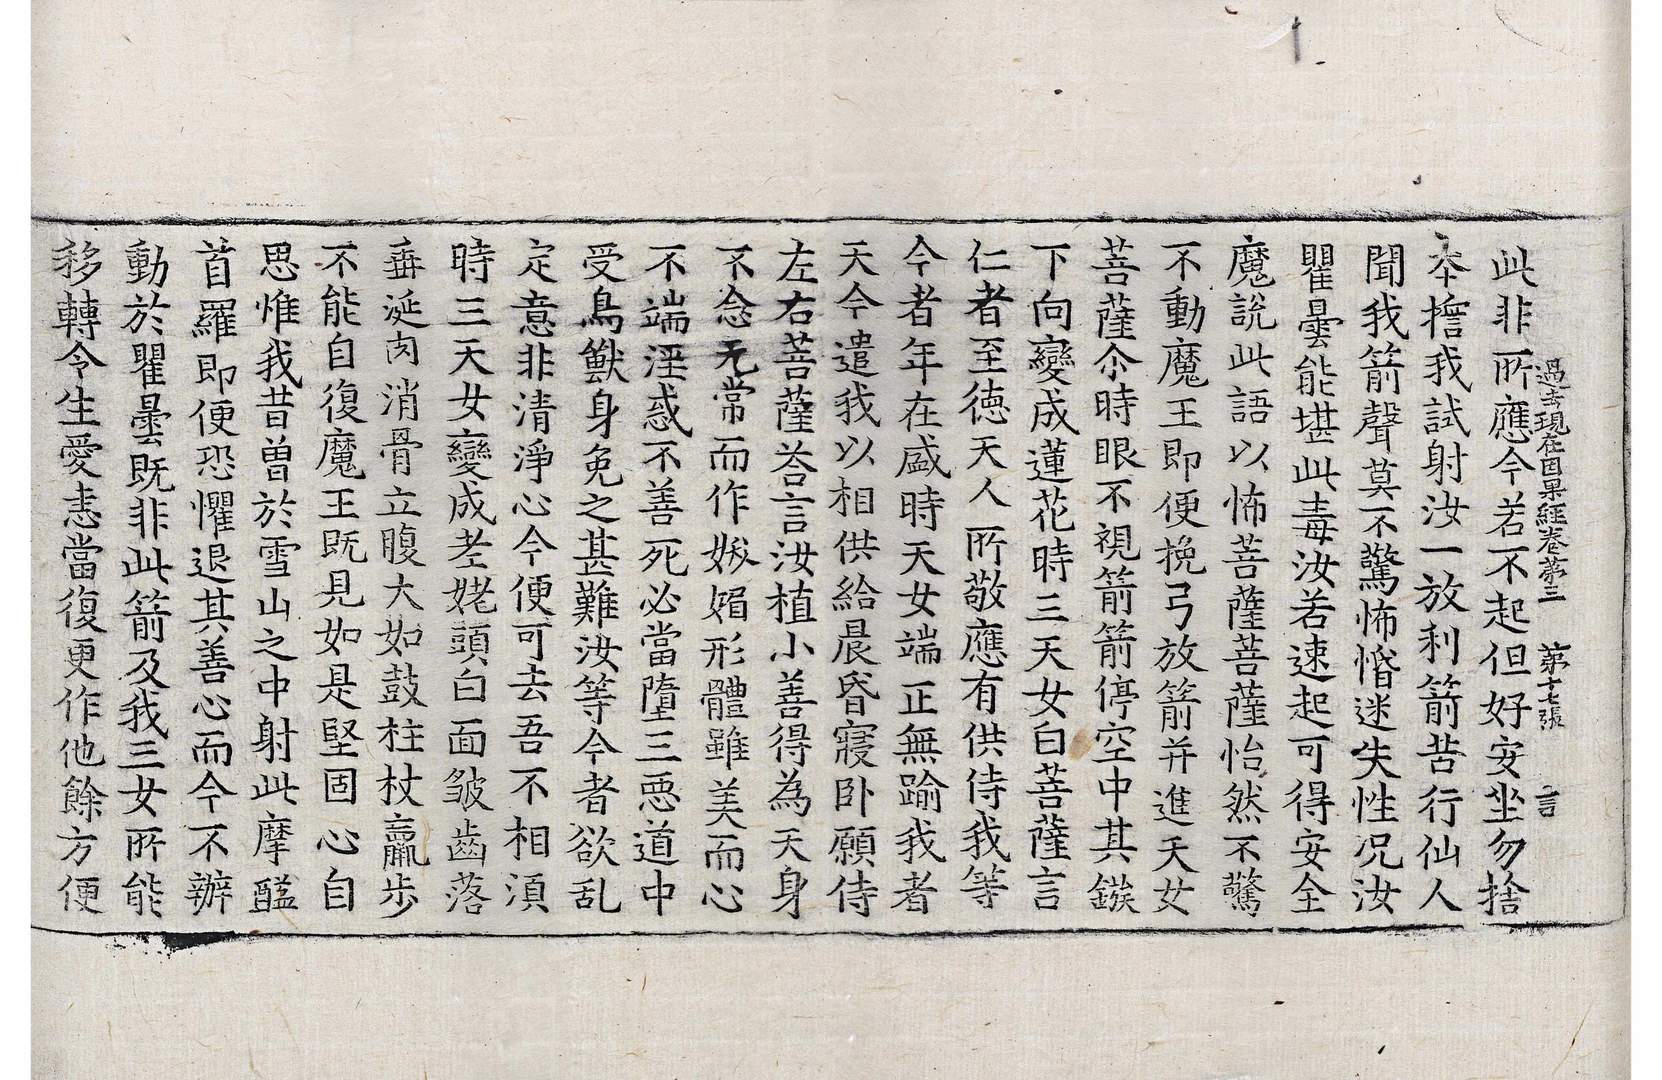 過去現在因果経卷第三　第十七張　言
此非所應今若不起但好安坐勿捨
夲擔我試射汝一放利箭苦行仙人
聞我箭聲莫不驚怖惛迷失性况汝
瞿曇能堪此毒汝若速起可得安全
魔說此語以怖菩薩菩薩怡然不驚
不動魔王即便挽弓放箭并進天女
菩薩尒時眼不視箭箭停空中其鏃
下向變成蓮花時三天女白菩薩言
仁者至德天人所敬應有供侍我等
今者年在盛時天女端正無踰我者
天今遣我以相供給晨昏寢卧願侍
左右菩薩荅言汝植小善得為天身
不念无常而作妖媚形體雖美而心
不端淫惑不善死必當墮三惡道中
受鳥獸身免之甚難汝等今者欲乱
定意非清淨心今便可去吾不相湏
時三天女變成老姥頭白面皺齒落
垂涎肉消骨立腹大如鼓柱杖羸步
不能自復魔王既見如是堅固心自
思惟我昔曽於雪山之中射此摩醯
首羅即便恐懼退其善心而今不辦
動於瞿曇既非此箭及我三女所能
移轉令生愛恚當復更作他餘方便